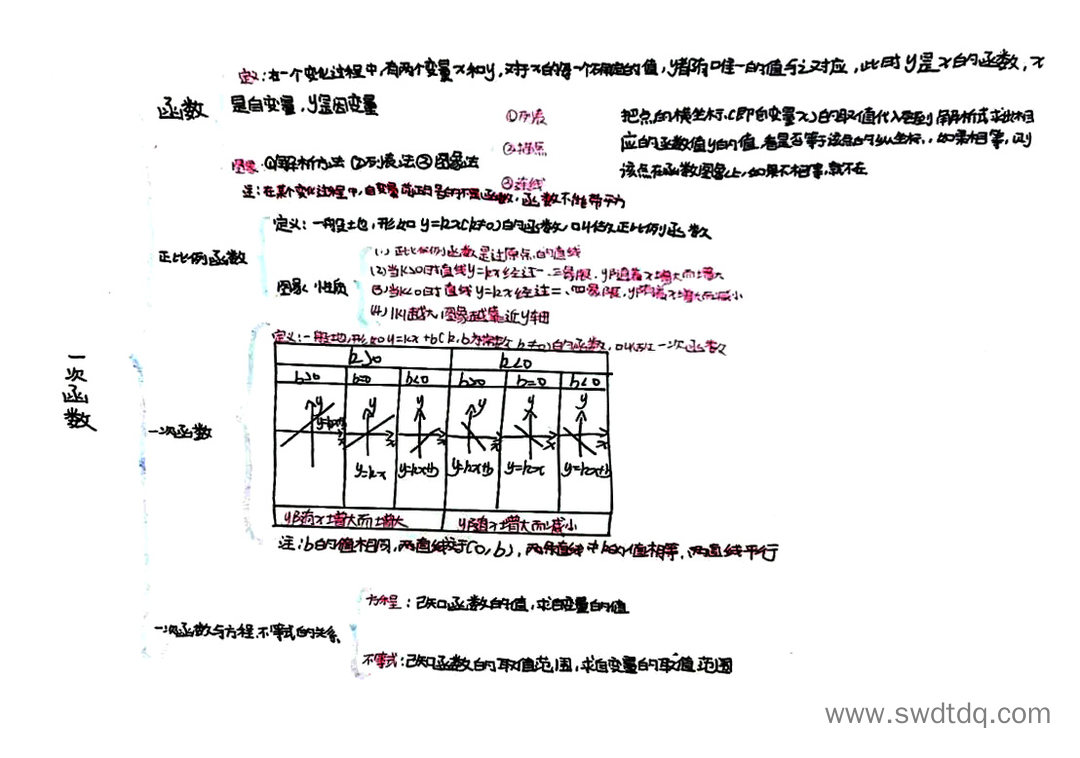 定义:在一个变化过程中,有两个变量x和y,对于x的每一个确定的值,y都有唯一的值与之对应,此时y是x的函数,x
是自变量,y是因变量
函数
①列表
②描点
③连线
把点的横坐标(即自变量x)的取值代入到解析式求出相
应的函数值y的值,看是否等于该点的纵坐标,如果相等,则
该点在函数图象上,如果不相等,就不在
图象 ①解析方法 ②列表法 ③图象法
注:在某个变化过程中,自变量
函数不能带
定义:一般地,形如 y=kx(k≠0)的函数,叫做正比例函数
正比例函数
图象、性质
(1)正比例函数是过原点的直线
(2)当k>0时直线y=kx经过一、三象限,y随着x增大而增大
(3)当k<0时直线y=kx经过二、四象限,y随着x增大而减小
(4)|k|越大,图象越靠近y轴
一次函数
一次函数
定义:一般地,形如y=kx+b(k、b为常数 k≠0)的函数,叫做一次函数
k>0 k<0
b>0 b=0 b<0 b>0 b=0 b<0
y y y y y y
y=kx+b
x x x x x
y=kx y=kx+b y=kx+b y=kx y=kx+b
y随x增大而增大 y随x增大而减小
注:b的值相同,两直线交于(0,b),两条直线中k的值相等,两直线平行
一次函数与方程、不等式的关系
方程:已知函数的值,求自变量的值
不等式:已知函数的取值范围,求自变量的取值范围
www.swdtdq.com